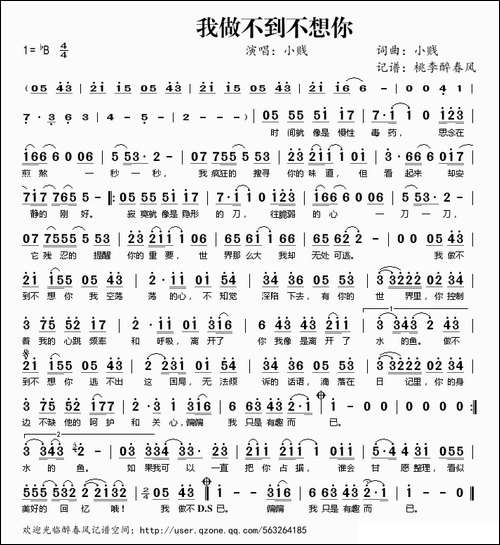 我做不到不想你
1=♭B 4/4 演唱：小贱 词曲：小贱
记谱：桃李醉春风
(05 43 | 21 15 05 43 | 21 15 05 43 | 21 216 6 - | 00 41 |
7·3 63 | 4 - 5 - | 2 - - - ) | 05 55 51 17 | 7·1 1 0 123 |
时间就像是慢性 毒药， 思念在
166 6006 | 553·2 - | 07 755 553 | 23 211 101 | 3·666 017 |
煎熬 一秒一秒， 我疯狂的搜寻 你的味道， 但看起来 却安
717 765 5 - |: 05 55 51 17 | 7·1 1 0 123 | 166 6006 | 553·2 - |
静的刚好。 寂寞就像是隐形 的刀， 往脆弱 的心 一刀一刀，
07 7555 553 | 23 211 106 | 65 61 166 | 65 62 2 - | 00 05 43 |
它残忍的提醒 你的重要， 世界那么大我却 无处可逃。 我做不
21 155 05 43 | 2·11 01 54 | 34 23 01 23 | 33 3222 02 34 |
到不想你 我空荡 荡的心，不知觉 深陷下去，有你的 世界里，你控制
3 75 52 17 | 2·11 0316 | 6 43 43 211 | 3 343 43 2 |
着我的心跳频率 和呼吸，离开了 你我像是离开了 水的鱼。做不
21 155 05 43 | 2·11 01 54 | 34 23 01 23 | 33 3222 02 34 |
到不想你 逃不出 这困局，无法烦 诉的话语，滴落在 日记里，你的身
3 75 52 177 | 2·3 1 316 | 6 63 43 2·1 | 1 - 00 | 00 00 :|
边不缺他的呵护 和关心，偏偏 我只是有趣而 已。
3 343 43 2 | 02 343 43 2 | 02 23 21 011 | 5·4 4 31 055 |
水的鱼。 如果我可以一直 把你占据， 谁会 甘愿整理，看似
555 532 2221 | 2/4 05 43 | 1 0 316 | 6 63 43 2·1 | 1 - - - ||
美好的回忆哦！ 我做不D.S已。 偏偏 我只是有趣而 已。
欢迎光临醉春风记谱空间：http://user.qzone.qq.com/563264185